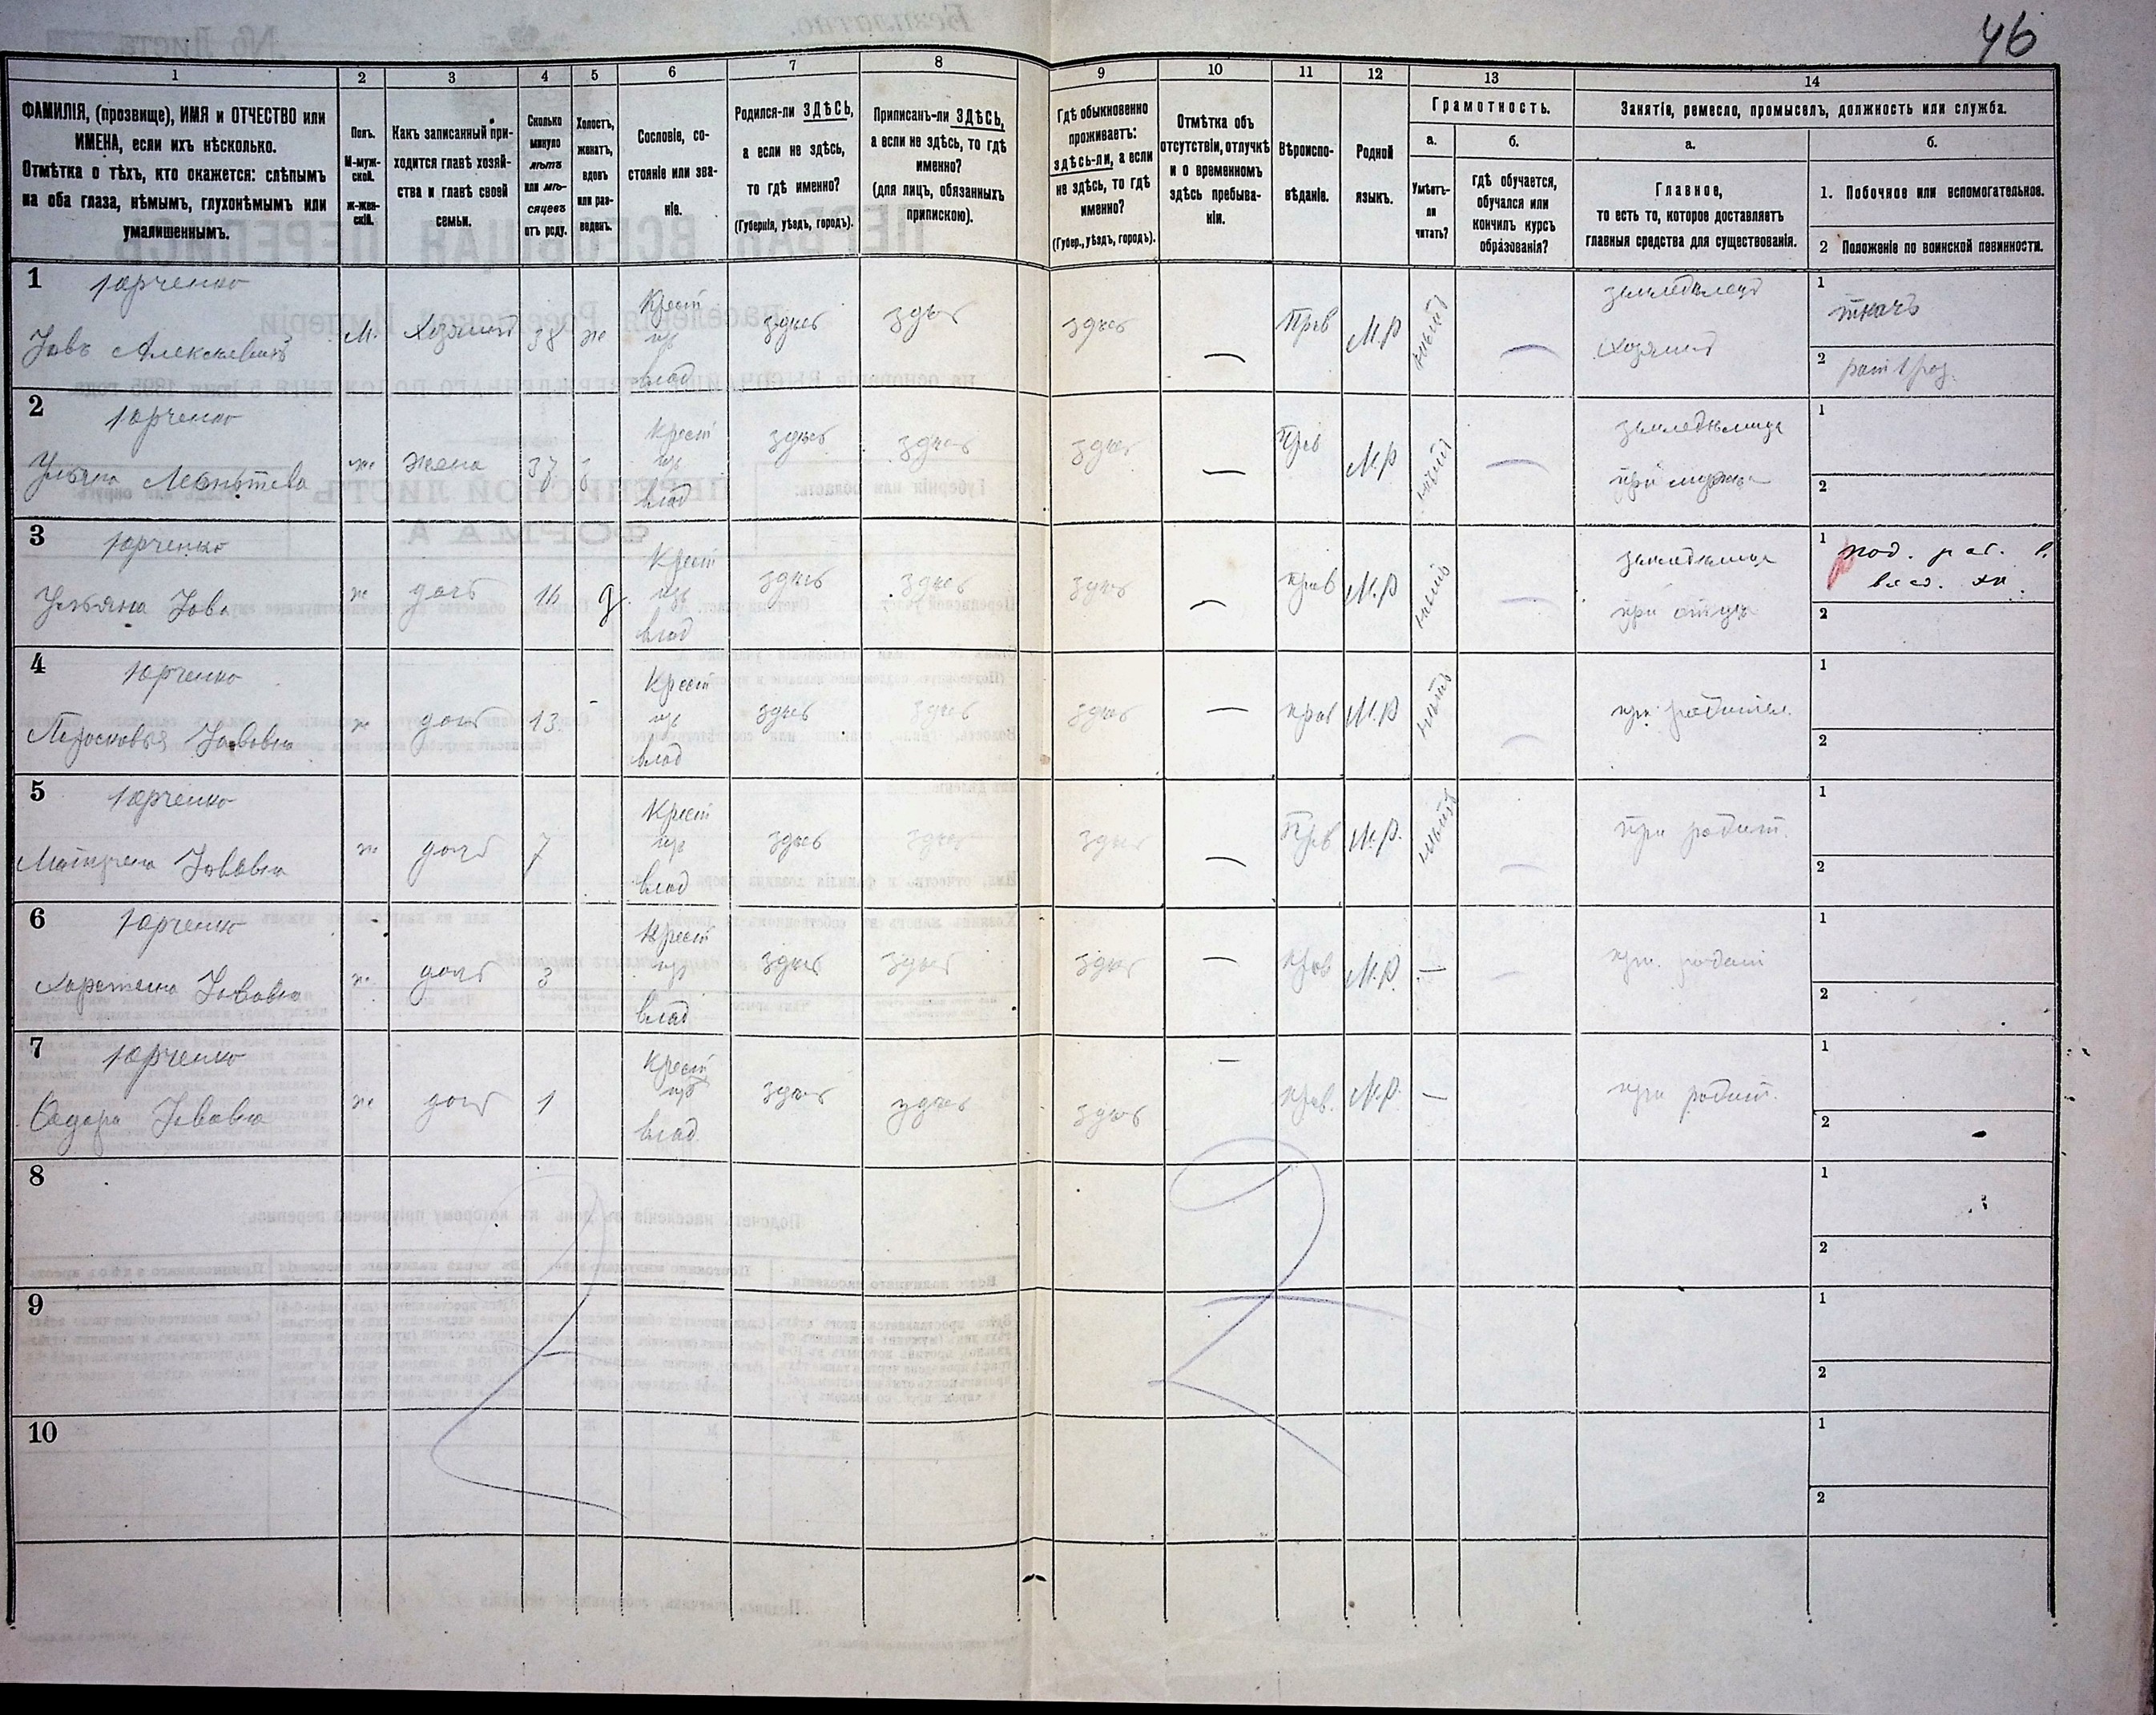 46
1
2
3
4
5
6
7
8
9
10
11
12
13
14
ФАМИЛІЯ, (прозвище), ИМЯ и ОТЧЕСТВО или
ИМЕНА, если ихъ нѣсколько.
Отмѣтка о тѣхъ, кто окажется: слѣпымъ
на оба глаза, нѣмымъ, глухонѣмымъ или
умалишеннымъ.
Полъ.
М-муж-
ской.
ж-жен-
скій.
Какъ записанный при-
ходится главѣ хозяй-
ства и главѣ своей
семьи.
Сколько
минуло
лѣтъ
или мѣ-
сяцевъ
отъ роду.
Холостъ,
женатъ,
вдовъ
или раз-
веденъ.
Сословіе, со-
стояніе или зва-
ніе.
Родился-ли ЗДѢСЬ,
а если не здѣсь,
то гдѣ именно?
(Губернія, уѣздъ, городъ).
Приписанъ-ли ЗДѢСЬ,
а если не здѣсь, то гдѣ
именно?
(для лицъ, обязанныхъ
припискою).
Гдѣ обыкновенно
проживаетъ:
здѣсь-ли, а если
не здѣсь, то гдѣ
именно?
(Губер., уѣздъ, городъ).
Отмѣтка объ
отсутствіи, отлучкѣ
и о временномъ
здѣсь пребыва-
ніи.
Вѣроиспо-
вѣданіе.
Родной
языкъ.
Грамотность.
а.
Умѣетъ-
ли
читать?
б.
гдѣ обучается,
обучался или
кончилъ курсъ
образованія?
Занятіе, ремесло, промыселъ, должность или служба.
а.
Главное,
то есть то, которое доставляетъ
главныя средства для существованія.
б.
1. Побочное или вспомогательное.
2 Положеніе по воинской повинности.
1 Юрченко
Іовъ Алексѣевичъ
м. Хозяинъ 38 же
Крест
изъ
влад
здѣсь здѣсь здѣсь —
Прв М.Р нѣтъ
земледѣлецъ
хозяинъ
1 ткачъ
2
2 Юрченко
ж жена 37
Крест
изъ
влад
здѣсь здѣсь здѣсь —
Прв М.Р нѣтъ
земледѣлица
при мужѣ
1
2
3 Юрченко
Ульяна Іова
ж дочь 16 д.
Крест
изъ
влад
здѣсь здѣсь здѣсь —
прав М.Р нѣтъ
земледѣлица
при отцѣ
1
2
4 Юрченко
Парасковья Іововна
ж дочь 13 -
Крест
изъ
влад
здѣсь здѣсь здѣсь —
прав М.Р нѣтъ
при родител.
1
2
5 Юрченко
Матрена Іововна
ж дочь 7
Крест
изъ
влад
здѣсь здѣсь здѣсь —
Прв М.Р. нѣтъ
при родит.
1
2
6 Юрченко
Харетина Іововна
ж. дочь 3
Крест
изъ
влад
здѣсь здѣсь здѣсь —
прав М.Р. —
при родит
1
2
7 Юрченко
Іововна
ж дочь 1
Крест
изъ
влад
здѣсь здѣсь здѣсь —
прав. М.Р. —
при родит.
1
2
8
1
2
9
1
2
10
1
2